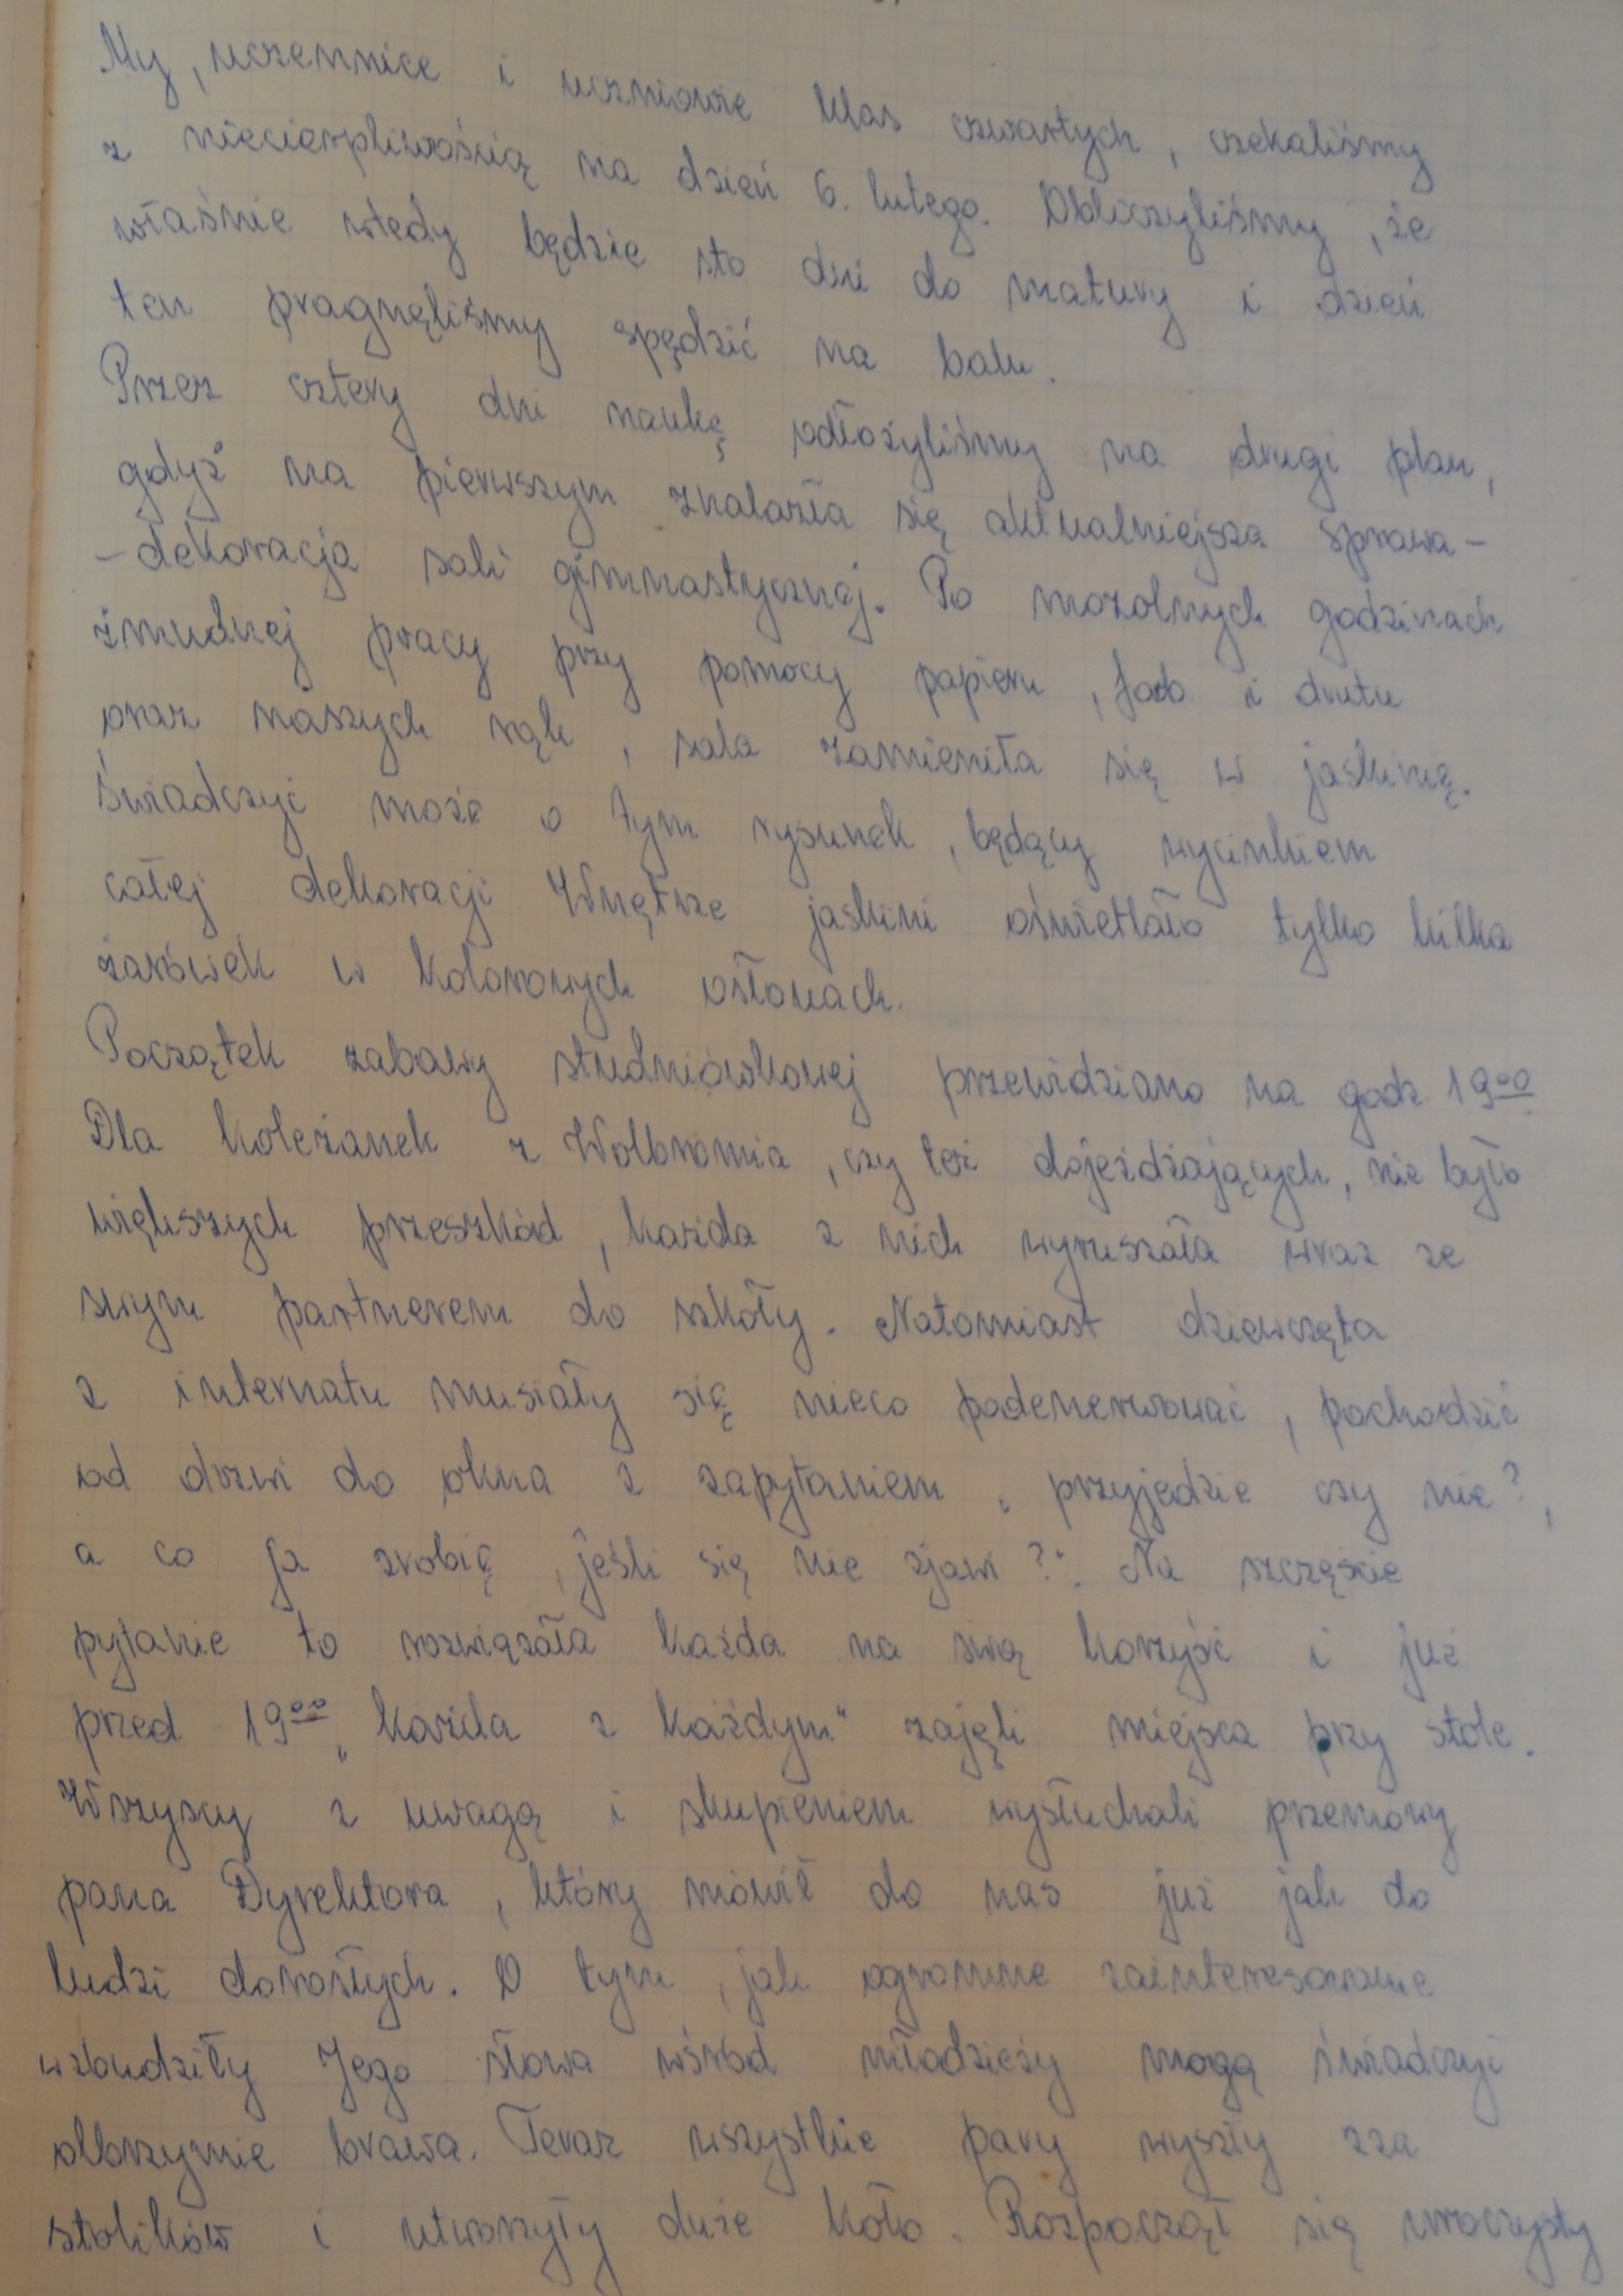 My, uczennice i uczniowie klas czwartych, czekaliśmy
z niecierpliwością na dzień 6. lutego. Obliczyliśmy, że
właśnie wtedy będzie sto dni do matury i dzień
ten pragnęliśmy spędzić na balu.
Przez cztery dni naukę odłożyliśmy na drugi plan,
gdyż na pierwszym znalazła się aktualniejsza sprawa -
- dekoracja sali gimnastycznej. Po mozolnych godzinach
żmudnej pracy przy pomocy papieru, farb i drutu
oraz naszych rąk, sala zamieniła się w jaskinię.
Świadczyć może o tym rysunek, będący wycinkiem
całej dekoracji. Wnętrze jaskini oświetlało tylko kilka
żarówek w kolorowych osłonach.
Początek zabawy studniówkowej przewidziano na godz 19⁰⁰.
Dla koleżanek z Wolbromia, czy też dojeżdżających, nie było
większych przeszkód, każda z nich wyruszała wraz ze
swym partnerem do szkoły. Natomiast dziewczęta
z internatu musiały się nieco podenerwować, pochodzić
od drzwi do okna z zapytaniem „przyjedzie czy nie?,
a co ja zrobię, jeśli się nie zjawi?". Na szczęście
pytanie to rozwiązała każda na swą korzyść i już
przed 19⁰⁰ „każda z każdym" zajęli miejsca przy stole.
Wszyscy z uwagą i skupieniem wysłuchali przemowy
pana Dyrektora, który mówił do nas już jak do
ludzi dorosłych. O tym, jak ogromne zainteresowanie
wzbudziły Jego słowa wśród młodzieży mogą świadczyć
olbrzymie brawa. Teraz wszystkie pary wyszły zza
stolików i utworzyły duże koło. Rozpoczął się uroczysty